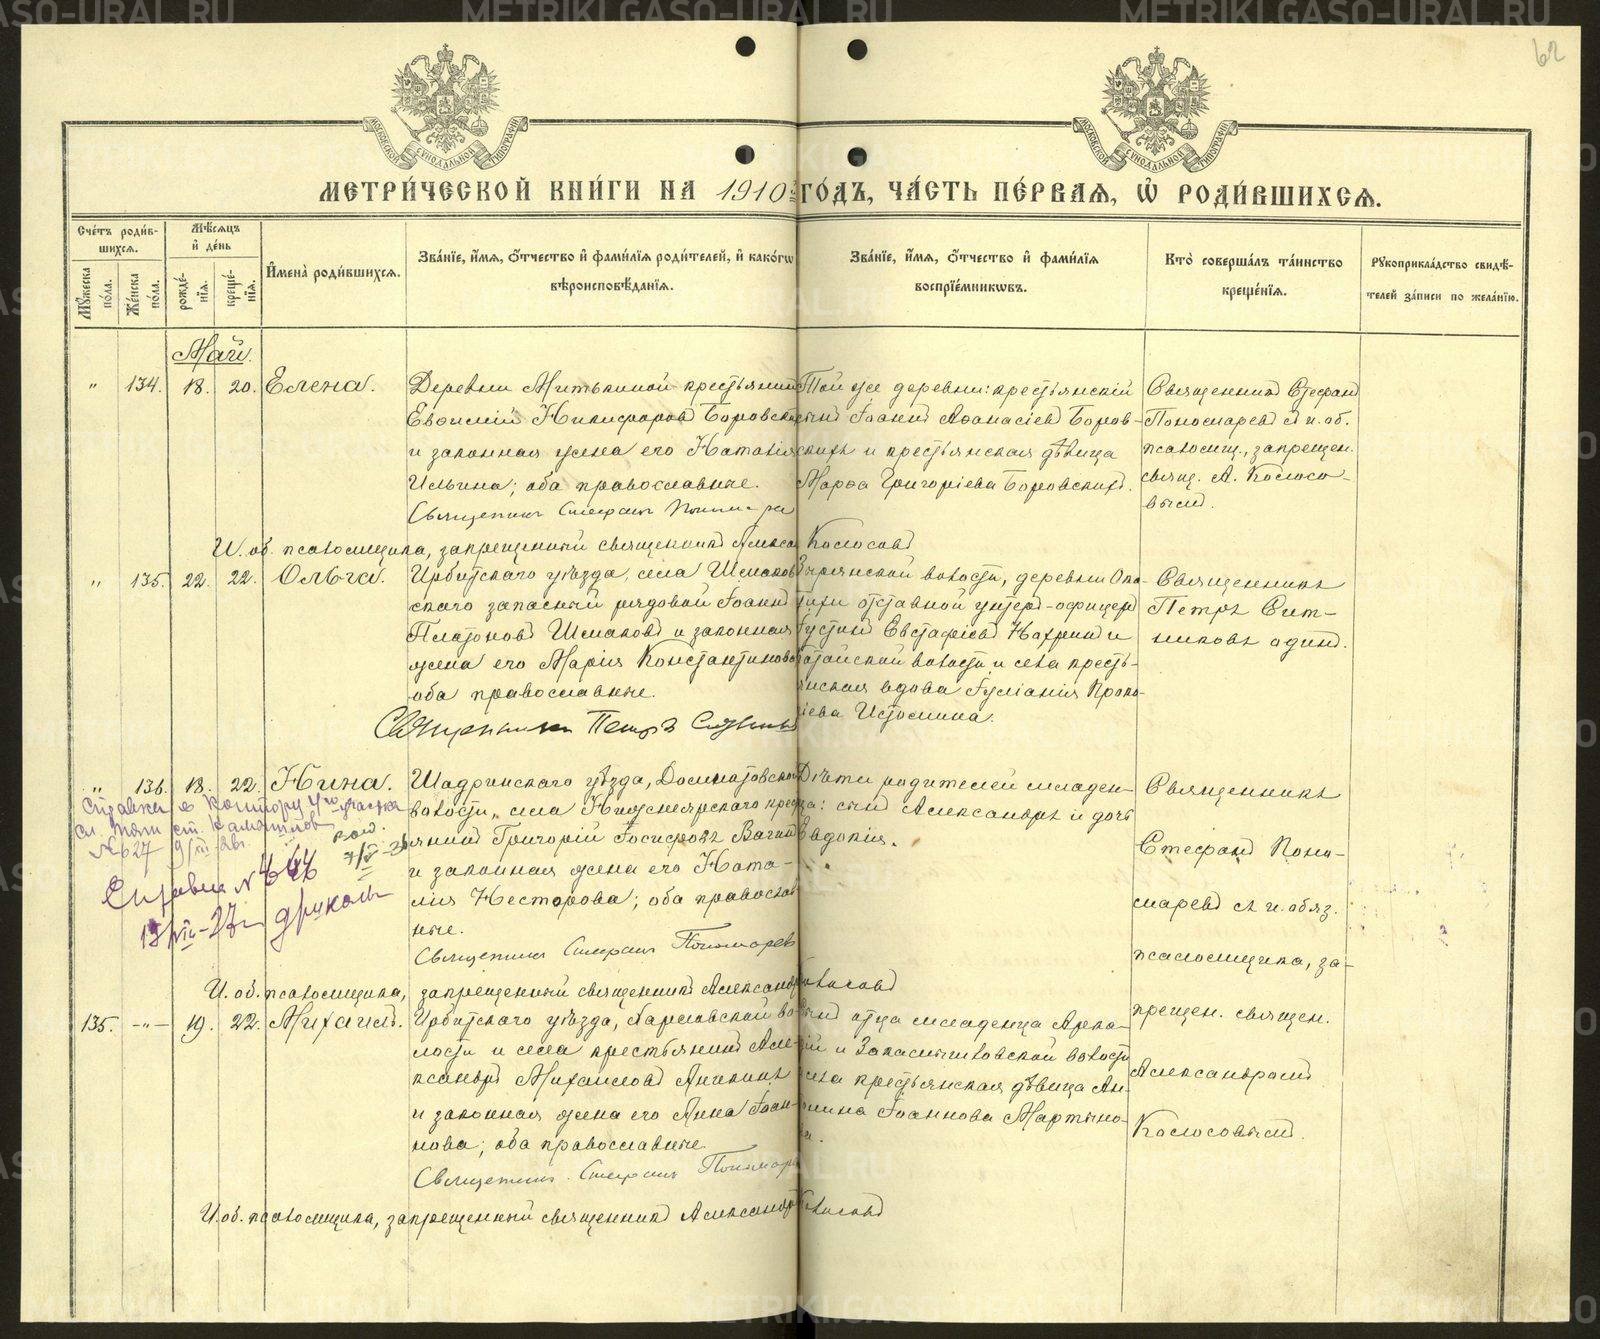 62
МЕТРИЧЕСКОЙ КНИГИ НА 1910 ГОДЪ, ЧАСТЬ ПЕРВАЯ, Ѡ РОДИВШИХСЯ.
Счетъ родившихся.
Мужеска пола.
Женска пола.
Мѣсяцъ и день
рожденія.
крещенія.
Имена родившихся.
Званіе, имя, отчество и фамилія родителей, и какогѡ вѣроисповѣданія.
Званіе, имя, отчество и фамилія воспріемниковъ.
Кто совершалъ таинство крещенія.
Рукоприкладство свидѣтелей записи по желанію.
Май.
" 134. 18. 20. Елена.
Деревни Митькиной крестьянинъ
Евѳимій Никифоровъ Боровскихъ
и законная жена его Наталія
Ильина; оба православные.
Священникъ Стефанъ Пономарев
Той же деревни: крестьянскій
сынъ Іоаннъ Аѳанасіевъ Боров-
скихъ и крестьянская дѣвица
Марѳа Григоріева Боровскихъ.
Священникъ Стефанъ
Пономаревъ съ и. об.
псаломщ., запрещен.
свящ. А. Колосо-
вымъ.
И. об. псаломщика, запрещенный священникъ Алекса Колосовъ
" 135. 22. 22. Ольга.
Ирбитскаго уѣзда, села Шмаков
скаго запасный рядовой Іоаннъ
Платоновъ Шмаковъ и законная
жена его Марія Константинова
оба православные.
Священникъ Петръ Ситников
Зырянской волости, деревни
отставной унтеръ-офицеръ
Іустинъ Евстафіевъ и
Катайской волости и села кресть-
янская вдова Іуліанія Проко-
піева Истомина.
Священникъ
Петръ Сит-
никовъ одинъ.
" 136. 18. 22. Нина.
Шадринскаго уѣзда, Долматовской
волости, села Нижнеярскаго крест
янинъ Григорій Іосифовъ Вагинъ
и законная жена его Ната-
лія Несторова; оба православ
ные.
Священникъ Стефанъ Пономарев
Дѣти родителей младен-
ца: сынъ Александръ и дочь
Евдокія.
Священникъ
Стефанъ Поно-
маревъ съ и. обяз.
псаломщика, за-
прещен. священ.
Александромъ
Колосовымъ.
Справка в Контору участка
ст. Камышлов
№ 627
Справка № 446
И. об. псаломщика, запрещенный священникъ Александръ Колосовъ
135. -"- 19. 22. Михаилъ.
Ирбитскаго уѣзда, Харловской во-
лости и села крестьянинъ Але-
ксандръ Михаиловъ Аникинъ
и законная жена его Анна Іоан-
нова; оба православные.
Священникъ Стефанъ Пономарев
Сынъ отца младенца Арка-
дій и волости
села крестьянская дѣвица Ан-
Іоаннова Мартыно-
ва.
И. об. псаломщика, запрещенный священникъ Александръ Колосовъ
METRIKI.GASO-URAL.RU